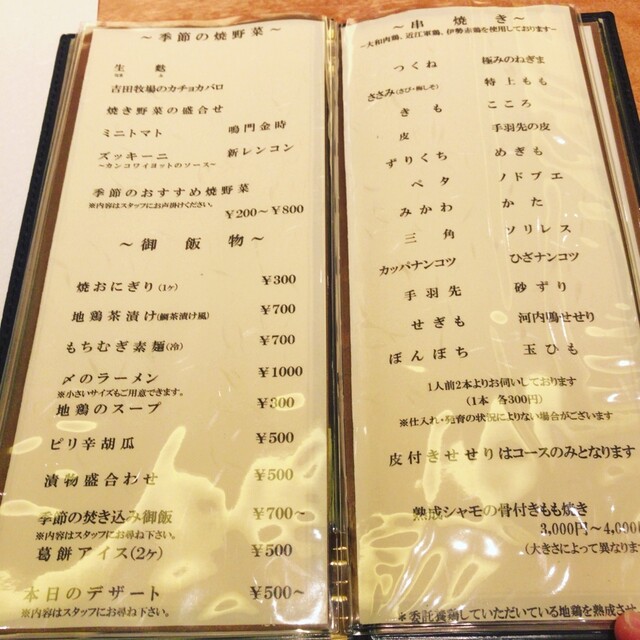 ～季節の焼野菜～
生麩
なま ふ
吉田牧場のカチョカバロ
焼き野菜の盛合せ
ミニトマト 鳴門金時
ズッキーニ 新レンコン
～カンコワイヨットのソース～
季節のおすすめ焼野菜
※内容はスタッフにお声掛けください。
￥200～￥800
～御飯物～
焼おにぎり(1ヶ) ￥300
地鶏茶漬け(鯛茶漬け風) ￥700
もちむぎ素麺(冷) ￥700
〆のラーメン ￥1000
※小さいサイズもご用意できます。
地鶏のスープ ￥300
ピリ辛胡瓜 ￥500
漬物盛合わせ ￥500
季節の焚き込み御飯 ￥700～
※内容はスタッフにお尋ね下さい。
葛餅アイス(2ヶ) ￥500
本日のデザート ￥500～
※内容はスタッフにお尋ね下さい。
～串焼き～
~大和肉鶏、近江軍鶏、伊勢赤鶏を使用しております~
つくね 極みのねぎま
ささみ(さび・梅しそ) 特上もも
きも こころ
皮 手羽先の皮
ずりくち めぎも
ペタ ノドブエ
みかわ かた
三角 ソリレス
カッパナンコツ ひざナンコツ
手羽先 砂ずり
せぎも 河内鴨せせり
ぼんぼち 玉ひも
1人前2本よりお伺いしております
(1本 各300円)
※仕入れ・発育の状況によりない場合がございます
皮付きせせりはコースのみとなります
熟成シャモの骨付きもも焼き
3,000円～4,00
(大きさによって異なりま
*委託養鶏していただいている地鶏を熟成させ